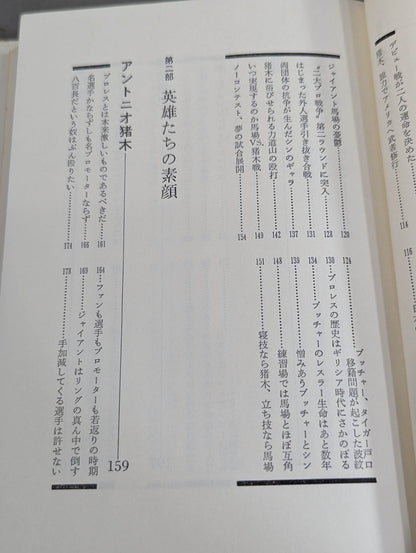 デビュー戦が二人の運命を決めた
アメリカへ武者修行
116
ジャイアント馬場の憂鬱……120
124……ブッチャー、タイガー戸口
移籍問題が起こした波紋
“二大プロ戦争”第二ラウンドに突入……128
130……プロレスの歴史はギリシア時代にさかのぼる
はじまった外人選手引き抜き合戦……131
134……ブッチャーのレスラー生命はあと数年
両団体の抗争が生んだシンのギャラ……137
139……憎みあうブッチャーとシン
猪木に浴びせられる力道山の殴打……142
148……練習場では馬場とほぼ互角
いつ実現するのか馬場VS.猪木戦……149
151……寝技なら猪木、立ち技なら馬場
ノーコンテスト、夢の試合展開……154
第二部 英雄たちの素顔
アントニオ猪木 159
プロレスとは本来激しいものであるべきだ……161
164……ファンも選手もプロモーターも若返りの時期
名選手かならずしも名プロモーターならず……168
169……ジャイアントはリングの真ん中で倒す
八百長だという奴はぶん殴りたい……174
178……手加減してくる選手は許せない